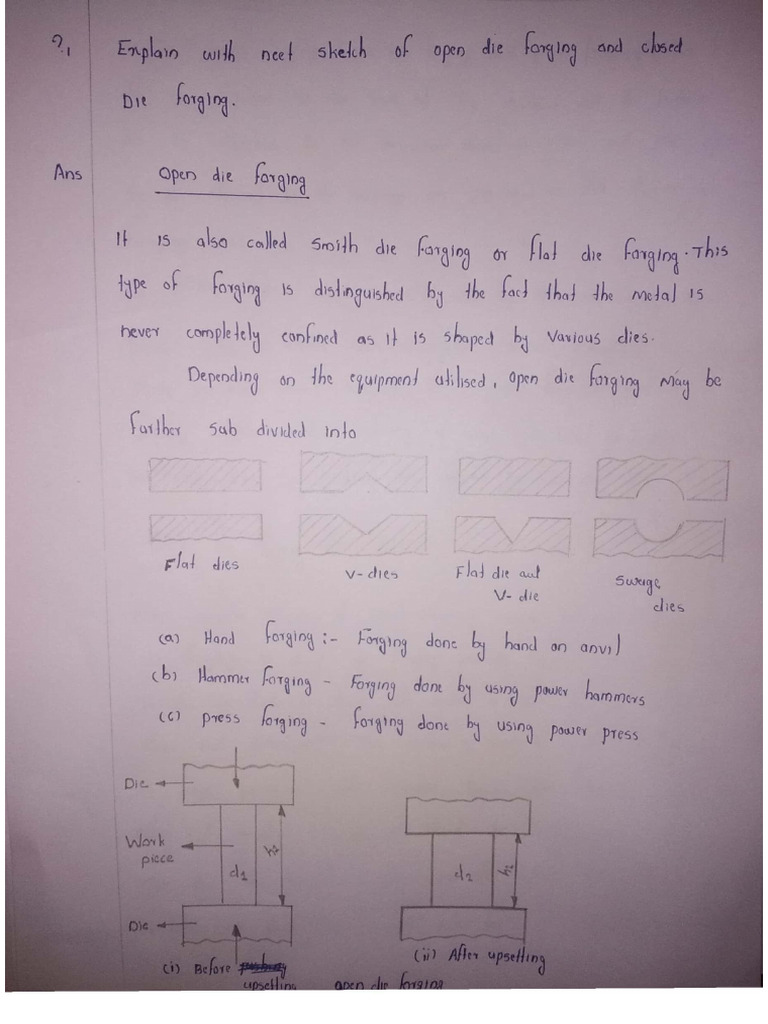 ?.1 Explain with neet sketch of open die forging and closed
Die forging.
Ans Open die forging
It is also called Smith die forging or flat die forging. This
type of forging is distinguished by the fact that the metal is
never completely confined as it is shaped by various dies.
Depending on the equipment utilised, open die forging may be
further sub divided into
Flat dies
V-dies
Flat die aut
V-die
Swage
dies
(a) Hand forging :- Forging done by hand on anvil
(b) Hammer forging - Forging done by using power hammers
(c) press forging - forging done by using power press
Die
Work
piece
d1
Die
d2
h1
(i) Before
upsetting
(ii) After upsetting
open die forging